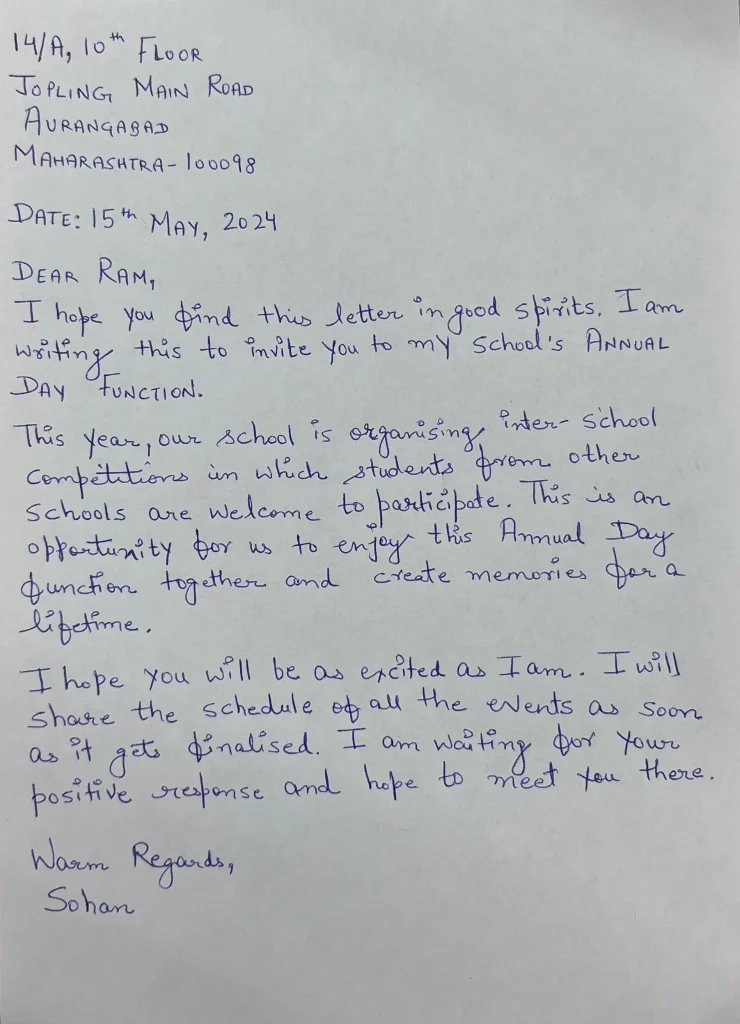 14/A, 10th FLOOR
JOPLING MAIN ROAD
AURANGABAD
MAHARASHTRA - 100098
DATE: 15th MAY, 2024
DEAR RAM,
I hope you find this letter in good spirits. I am
writing this to invite you to my school's ANNUAL
DAY FUNCTION.
This year, our school is organising inter-school
competitions in which students from other
schools are welcome to participate. This is an
opportunity for us to enjoy this Annual Day
function together and create memories for a
lifetime.
I hope you will be as excited as I am. I will
share the schedule of all the events as soon
as it gets finalised. I am waiting for your
positive response and hope to meet you there.
Warm Regards,
Sohan